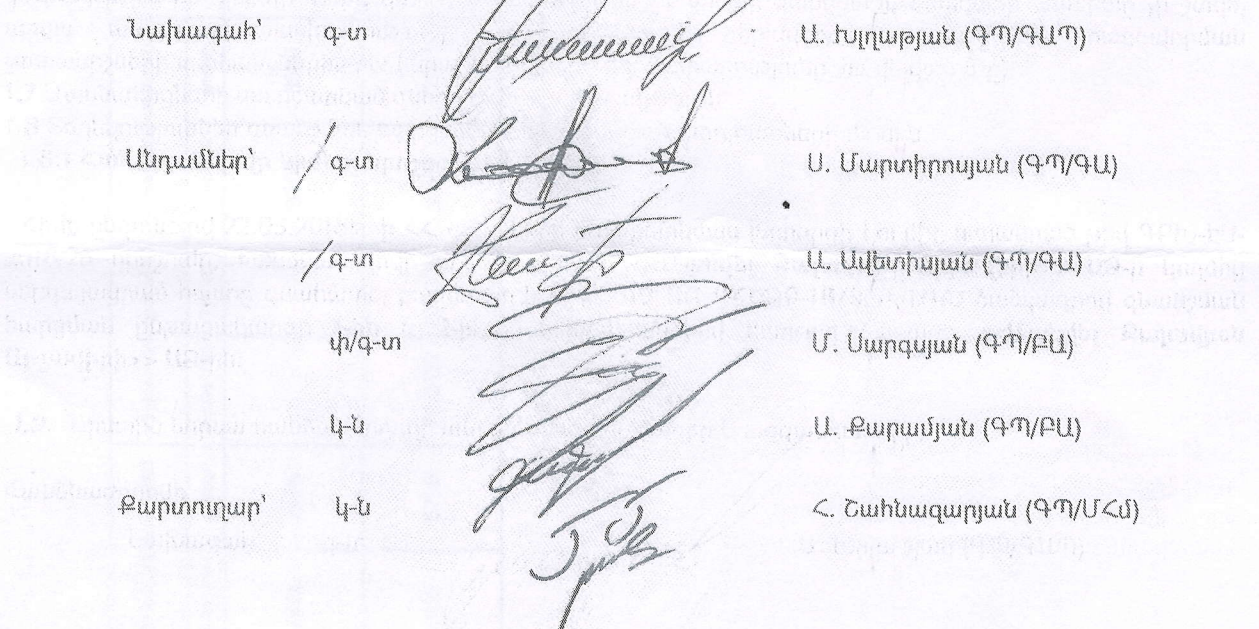 Նախագահ՝ գ-տ Ա. Խլղաթյան (ԳՊ/ԳԱՊ)
Անդամներ՝ / գ-տ Ս. Մարտիրոսյան (ԳՊ/ԳԱ)
/ գ-տ Ա. Ավետիսյան (ԳՊ/ԳԱ)
փ/գ-տ Մ. Սարգսյան (ԳՊ/ԲԱ)
կ-ն Ա. Քարամյան (ԳՊ/ԲԱ)
Քարտուղար՝ կ-ն Հ. Շահնազարյան (ԳՊ/ՄՀմ)